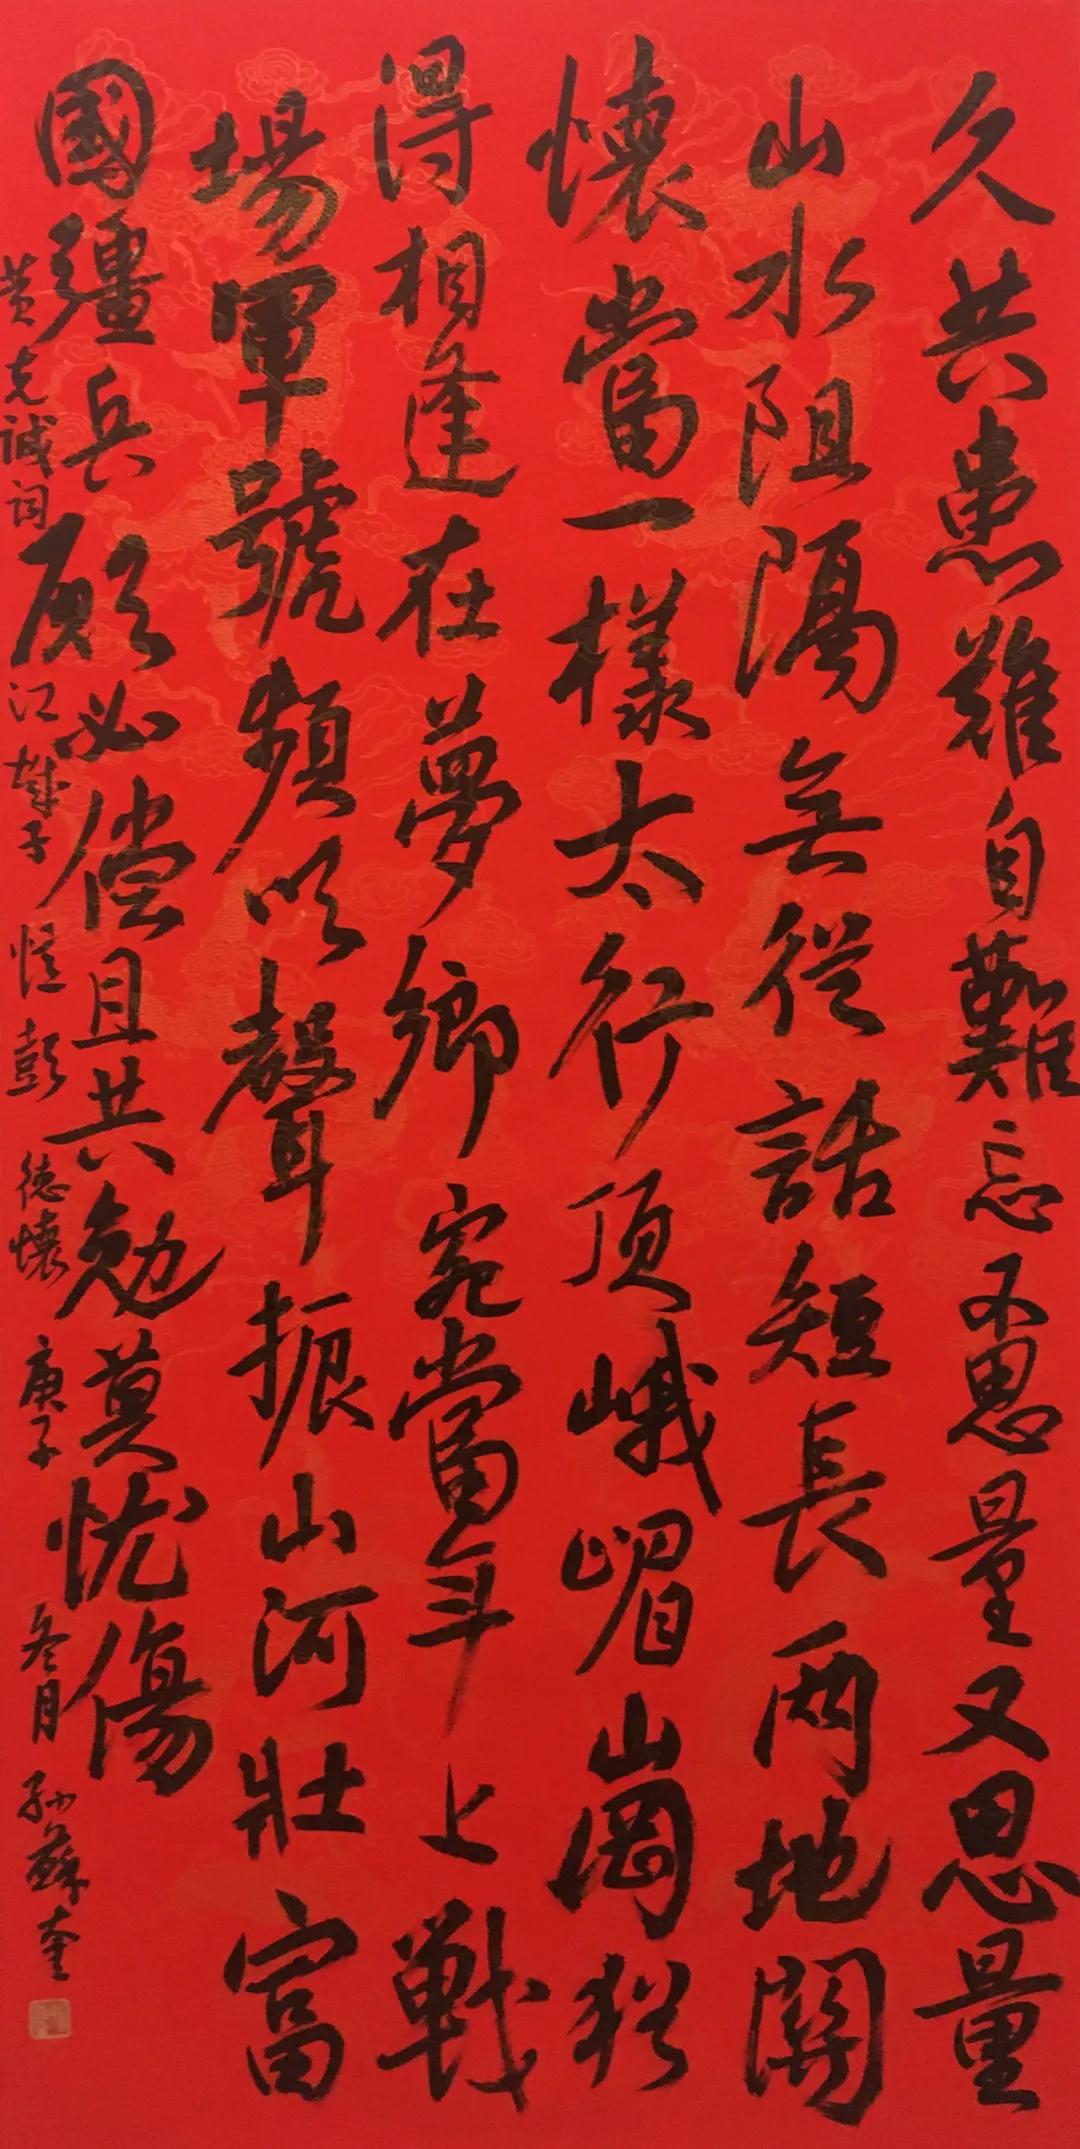 久共患難自難忘不思量又思量
山水阻隔無從話短長兩地關
懷當一樣太行頂峨嵋山崗猶
得相逢在夢鄉宛當年上戰
場軍號頻吹聲振山河壯富
國疆兵願必償且共勉莫忧傷
黄克诚詞江城子憶彭德懷庚子冬月孙蘇奎